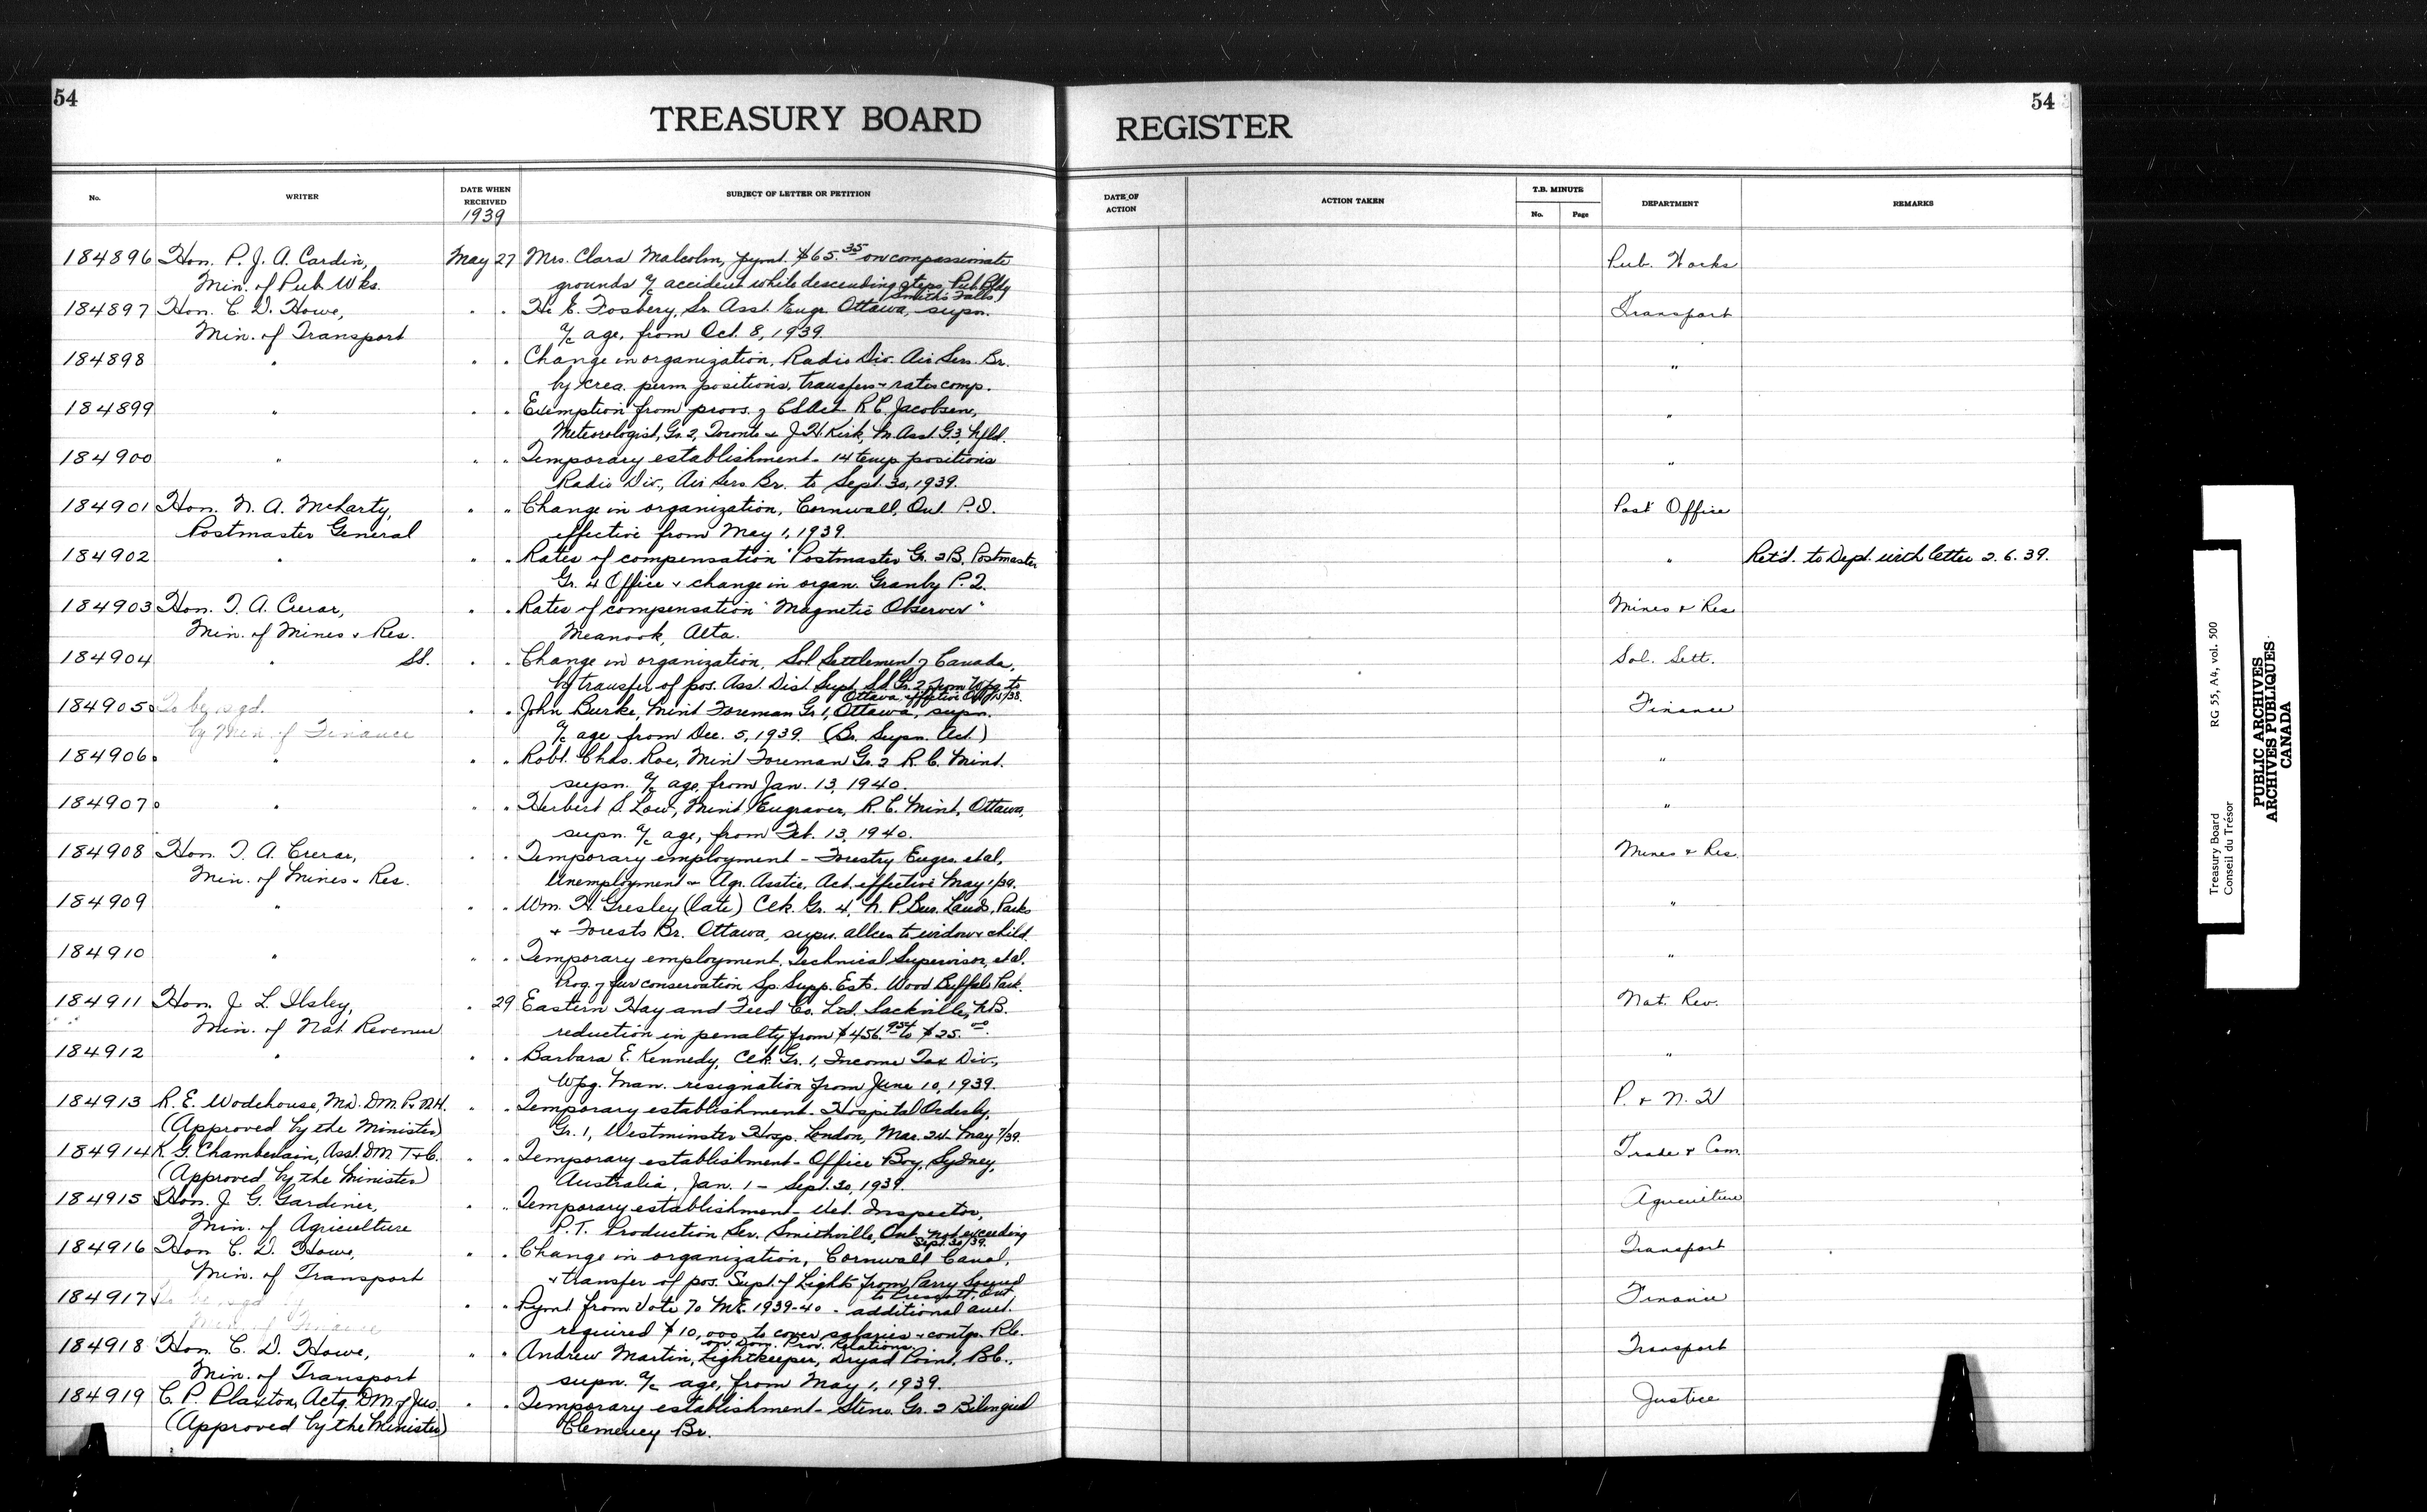 54
TREASURY BOARD
REGISTER
54
No.
WRITER
DATE WHEN RECEIVED
1939
SUBJECT OF LETTER OR PETITION
DATE OF ACTION
ACTION TAKEN
T.B. MINUTE
No.
Page
DEPARTMENT
REMARKS
184896 Hon. P. J. A. Cardin, May 27 Mrs. Clara Malcolm, pymt. $65.35 on compassionate Pub. Works
Min. of Pub Wks. grounds a/c accident while descending steps, Pub Bldg
Smiths Falls
184897 Hon. C. D. Howe, " " H. E. Fosbery, Sr. Asst. Engr. Ottawa, supn. Transport
Min. of Transport a/c age, from Oct. 8, 1939.
184898 " " " Change in organization, Radio Div. Air Serv. Br. "
by crea. perm. positions, transfers & rates comp.
184899 " " " Exemption from provs. of CS Act R C. Jacobsen, "
Meteorologist, Gr. 2, Toronto & J H Kirk, M. Asst. G3, Nfld.
184900 " " " Temporary establishment - 14 temp positions "
Radio Div., Air Serv Br. to Sept. 30, 1939.
184901 Hon. N. A. McLarty, " " Change in organization, Cornwall, Ont. P.O. Post Office
Postmaster General effective from May 1, 1939.
184902 " " " Rates of compensation "Postmaster Gr. 2B, Postmaster " Ret'd. to Dept. with letter 2.6.39.
Gr. 4 Office & change in organ. Granby P.Q.
184903 Hon. T. A. Crerar, " " Rates of compensation "Magnetic Observer" Mines & Res
Min. of Mines & Res. Meanook, Alta.
184904 " SS. " " Change in organization, Sol. Settlement of Canada, Sol. Sett.
by transfer of pos. Asst. Dist. Supt. S.S. Gr. 2 from Wpg. to
Ottawa, effective
184905 To be sgd. " " John Burke, Mint Foreman Gr. 1, Ottawa, supn. Finance
by Min. of Finance a/c age from Dec. 5, 1939. (Br. Supn. Act.)
184906 " " " Robt. Chas. Roe, Mint Foreman Gr. 2 R. C. Mint. "
supn. a/c age, from Jan. 13, 1940.
184907 " " " Herbert S. Low, Mint Engraver, R. C. Mint, Ottawa, "
supn. a/c age, from Feb. 13, 1940.
184908 Hon. T. A. Crerar, " " Temporary employment - Forestry Engrs. et al, Mines & Res.
Min. of Mines & Res. Unemployment & Agr. Asstce. Act. effective May 1/39.
184909 " " " Wm. H Gresley (late) Clk. Gr. 4, N. P. Bur. Lands, Parks "
& Forests Br. Ottawa, supn. allce to widow & child.
184910 " " " Temporary employment. Technical Supervisor, et al. "
Prog. of fur conservation Sp. Supp. Est. Wood Buffalo Park.
184911 Hon. J. L. Ilsley, " 29 Eastern Hay and Feed Co. Ltd. Sackville, N.B. Nat. Rev.
Min. of Nat Revenue reduction in penalty from $456.95 to $25.00.
184912 " " " Barbara E. Kennedy, Clk. Gr. 1, Income Tax Div., "
Wpg. Man. resignation from June 10, 1939.
184913 R. E. Wodehouse, M.D. DM. P & N.H. " " Temporary establishment - Hospital Orderly, P. & N. H
(Approved by the Minister) Gr. 1, Westminster Hosp. London, Mar. 24 - May 7/39.
184914 K. G. Chamberlain, Asst. DM T & C. " " Temporary establishment - Office Boy, Sydney, Trade & Com.
(Approved by the Minister) Australia, Jan. 1 - Sept. 30, 1939.
184915 Hon. J. G. Gardiner, " " Temporary establishment - Vet. Inspector, Agriculture
Min. of Agriculture P.T. Production Ser. Smithville, Ont. - not exceeding
Sept. 30/39.
184916 Hon C. D. Howe, " " Change in organization, Cornwall Canal, Transport
Min. of Transport & transfer of pos. Supt. of Lights from Parry Sound
to Prescott, Ont.
184917 To be sgd by " " Pymt. from Vote 70 M.E. 1939-40 - additional amt. Finance
Min. of Finance required $10,000 to cover salaries & contgs. R.C.
on Dom. Prov. Relations
184918 Hon. C. D. Howe, " " Andrew Martin, Lightkeeper, Dryad Point, B.C., Transport
Min. of Transport supn. a/c age, from May 1, 1939.
184919 C. P. Plaxton, Actg. DM. of Jus. " " Temporary establishment - Steno. Gr. 2 Bilingual Justice
(Approved by the Minister) Clemency Br.
Treasury Board RG 55, A4, vol. 500
Conseil du Trésor
PUBLIC ARCHIVES
ARCHIVES PUBLIQUES
CANADA